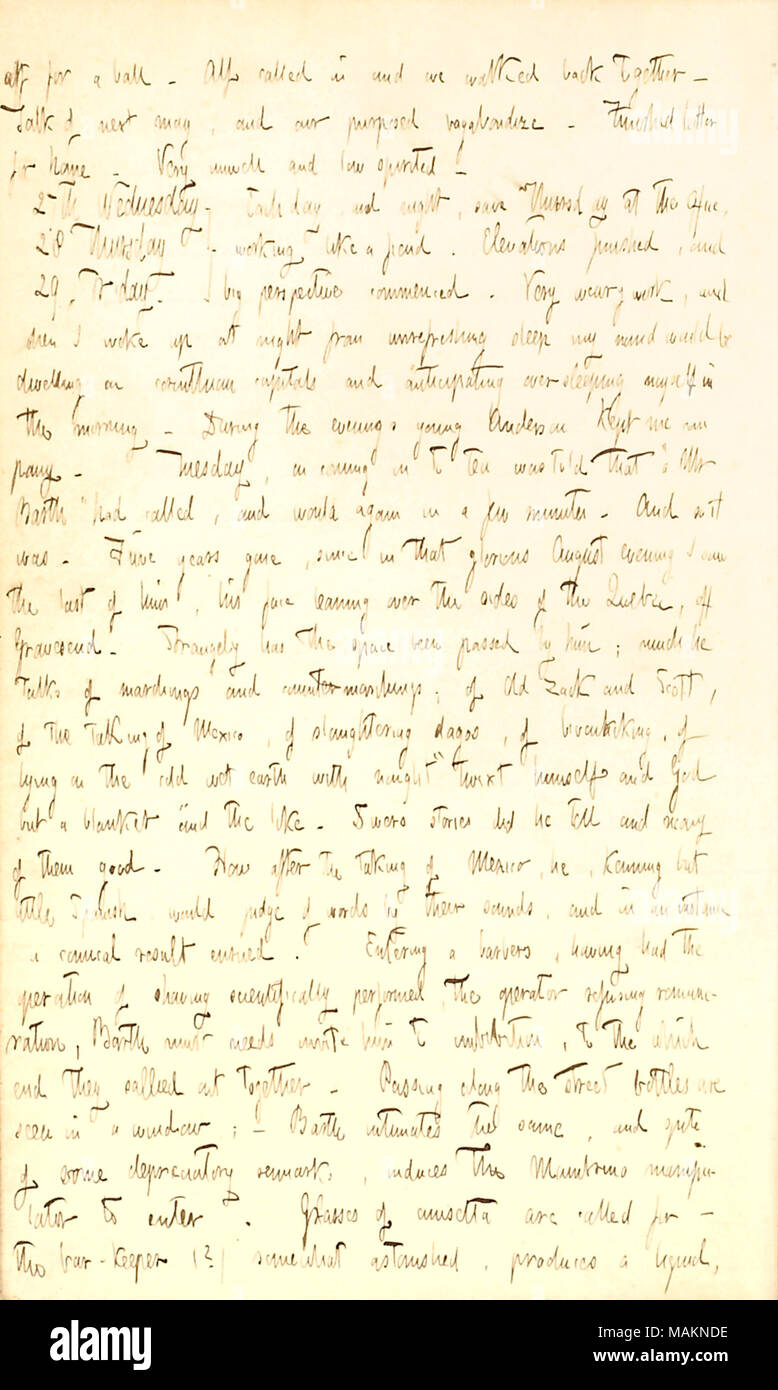 off for a ball - Alf called in and we walked back together -
Talk of next may, and our purposed vagabondize - Finished letter
for home - Very unwell and low spirited -
27 Wednesday - Each day and night, save Thursday at the office,
28 Thursday - working like a fiend. Elevations finished, and
29. Friday. big perspective commenced. Very weary work, and
when I woke up at night from unrefreshing sleep my mind would be
dwelling on corinthian capitals and anticipating oversleeping myself in
the morning - During the evenings young Anderson Kept me com
pany - Tuesday, on coming in to tea was told that "a Mr
Barth" had called, and would again in a few minutes - And so it
was - Five years gone, since in that glorious August evening I saw
the last of him, his face leaning over the sides of the Quebec, off
Gravesend - Strangely has the space been passed by him; much he
talks of marchings and countermarchings; of Old Zack and Scott,
of the taking of Mexico, of slaughtering dagos, of bivouacking, of
lying on the cold wet earth with naught "twixt himself and God
but a blanket" and the like - Divers stories did he tell and many
of them good - How after the taking of Mexico, he, Kenning but
little Spanish, would judge of words by their sounds, and in an instance
a comical result ensued. Entering a barbers, having had the
operation of shaving scientifically performed, the operator refusing remune-
ration, Barth must needs invite him to imbibition, to the which
end they sallied out together - Passing along the street bottles are
seen in a window; - Barth intimates the same, and spite
of some depreciatory remarks, induces the Mambrino manipu-
lator to enter. Glasses of anisetta are called for -
the bar-keeper (?) somewhat astonished, produces a liquid,
alamy
Image ID: MAKNDE
www.alamy.com